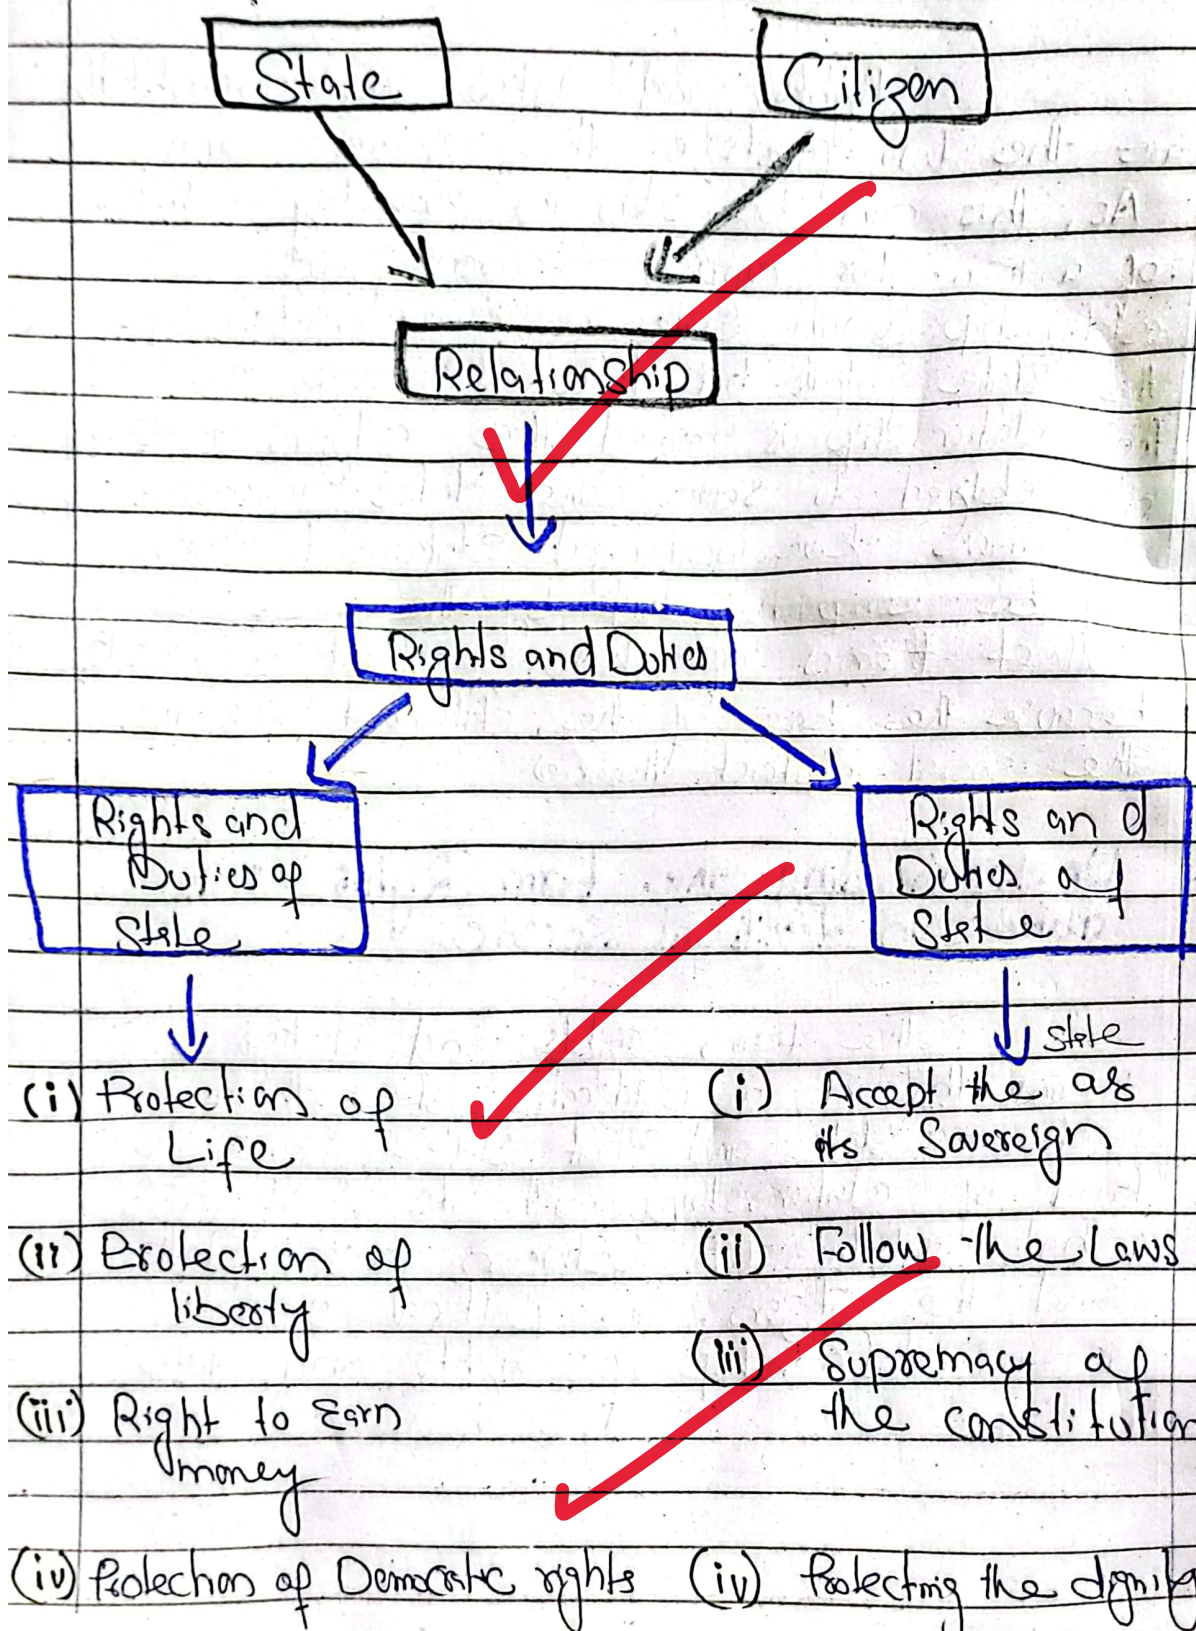 State
Citizen
Relationship
Rights and Duties
Rights and
Duties of
State
Rights and
Duties of
State
(i) Protection of
Life
(ii) Protection of
liberty
(iii) Right to Earn
money
(iv) Protection of Democratic rights
state
(i) Accept the as
its Sovereign
(ii) Follow the Laws
(iii) Supremacy of
the constitution
(iv) Protecting the dignity